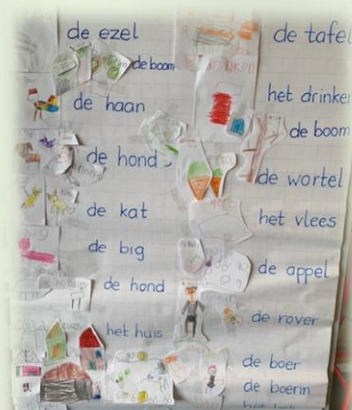 de ezel
de boom
de haan
de hond
de kat
de big
de hond
het huis
de tafel
het drinken
de boom
de wortel
het vlees
de appel
de rover
de boer
de boerin